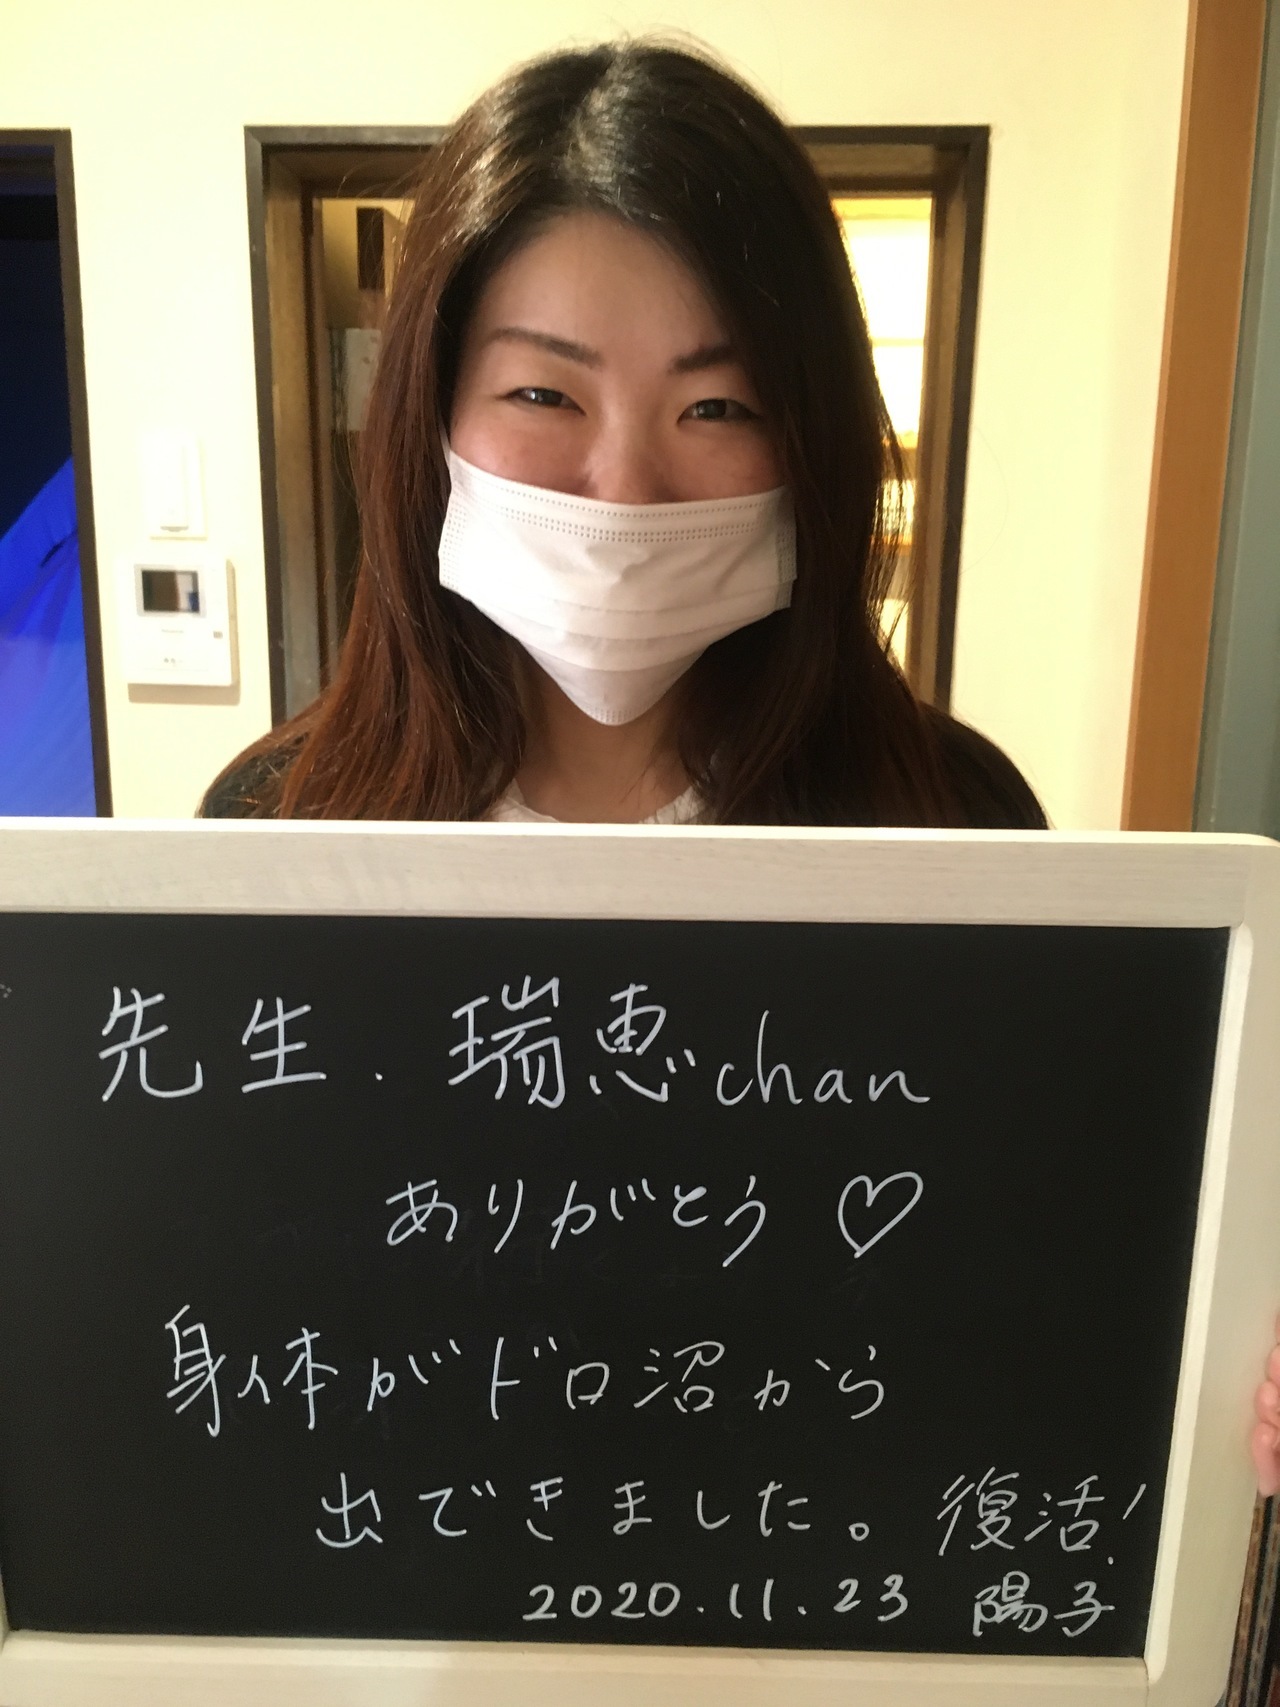 先生. 瑞恵chan
ありがとう♡
身体がドロ沼から
出できました。復活!
2020.11.23 陽子